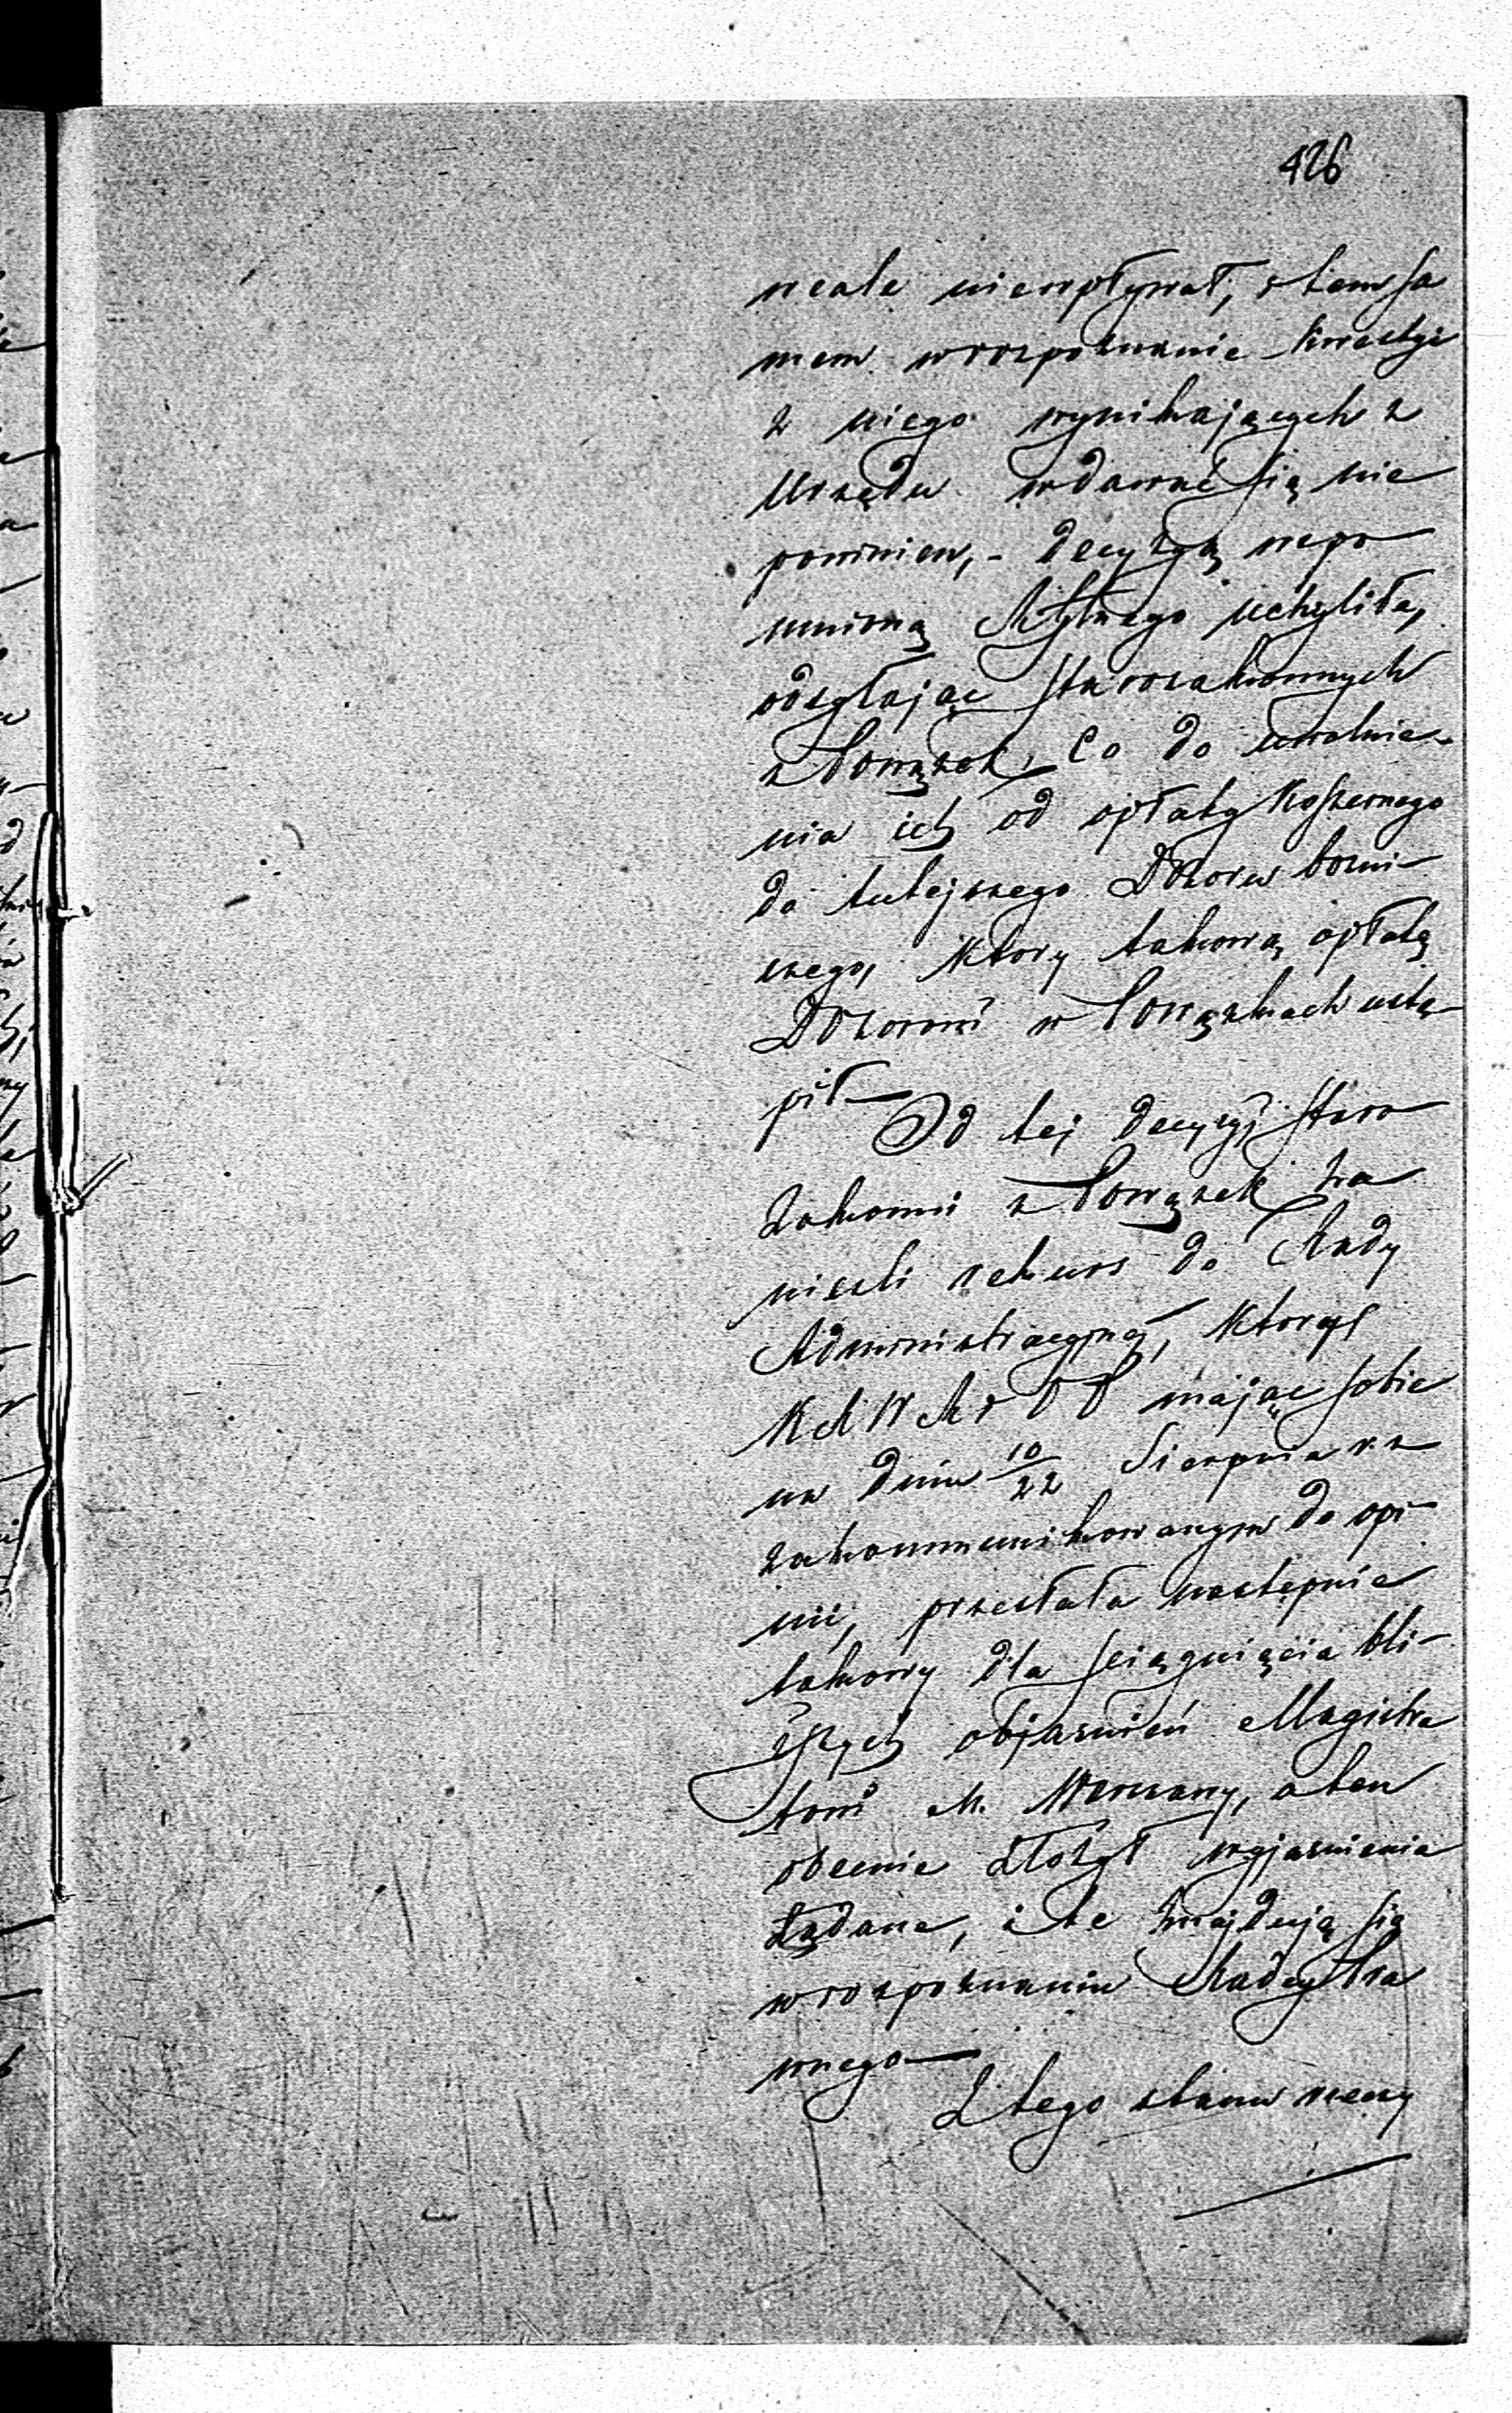 426
wcale niewpływał, s tem sa
mem w rozpoznanie kwestyi
z niego wynikających z
Urzędu wdawać się nie
powinien, - decyzyą wspo
mnioną M
uchyliła,
odsyłając starozakonnych
z Powązek, co do uwolnie-
nia ich od opłaty Koszernego
do tutejszego Dozoru bożni-
czego, który takową opłatę
Dozorowi w Powązkach ustą-
pił —
Od tej decyzyi staro
zakonni z Powązek za
nieśli rekurs do Rady
Administracyjnej, który
K R W R i D D mając sobie
w dniu 10/22 Sierpnia r. z
zakommunikowanym do opi-
nii, przesłała następnie
takowy dla ściągnięcia bli-
ższych objaśnień Magistra
towi M. Warszawy, a ten
obecnie złożył wyjaśnienia
żądane, i te znajdują się
w rozpoznaniu Radcy Pra
wnego —
Z tego stanu rzeczy